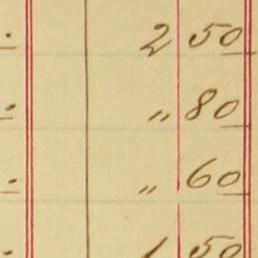 2 50
" 80
" 60
1 50